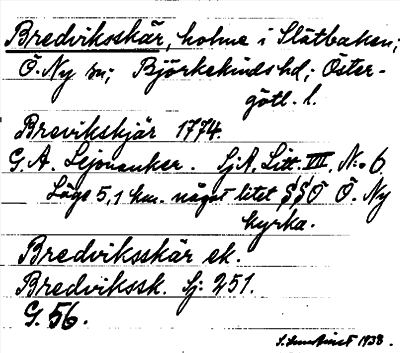 Bredviksskär, holme i Slätbaken;
Ö. Ny sn; Björkekinds hd; Öster-
götl. l.
Brevikskjär 1774.
G. A. Lejonanker. SjA, Litt. VII, No 6
Läge 5,1 km. något litet S§Ö Ö. Ny
kyrka.
Bredviksskär ek.
Bredvikssk. Sj: 251.
G. 56.
1938.